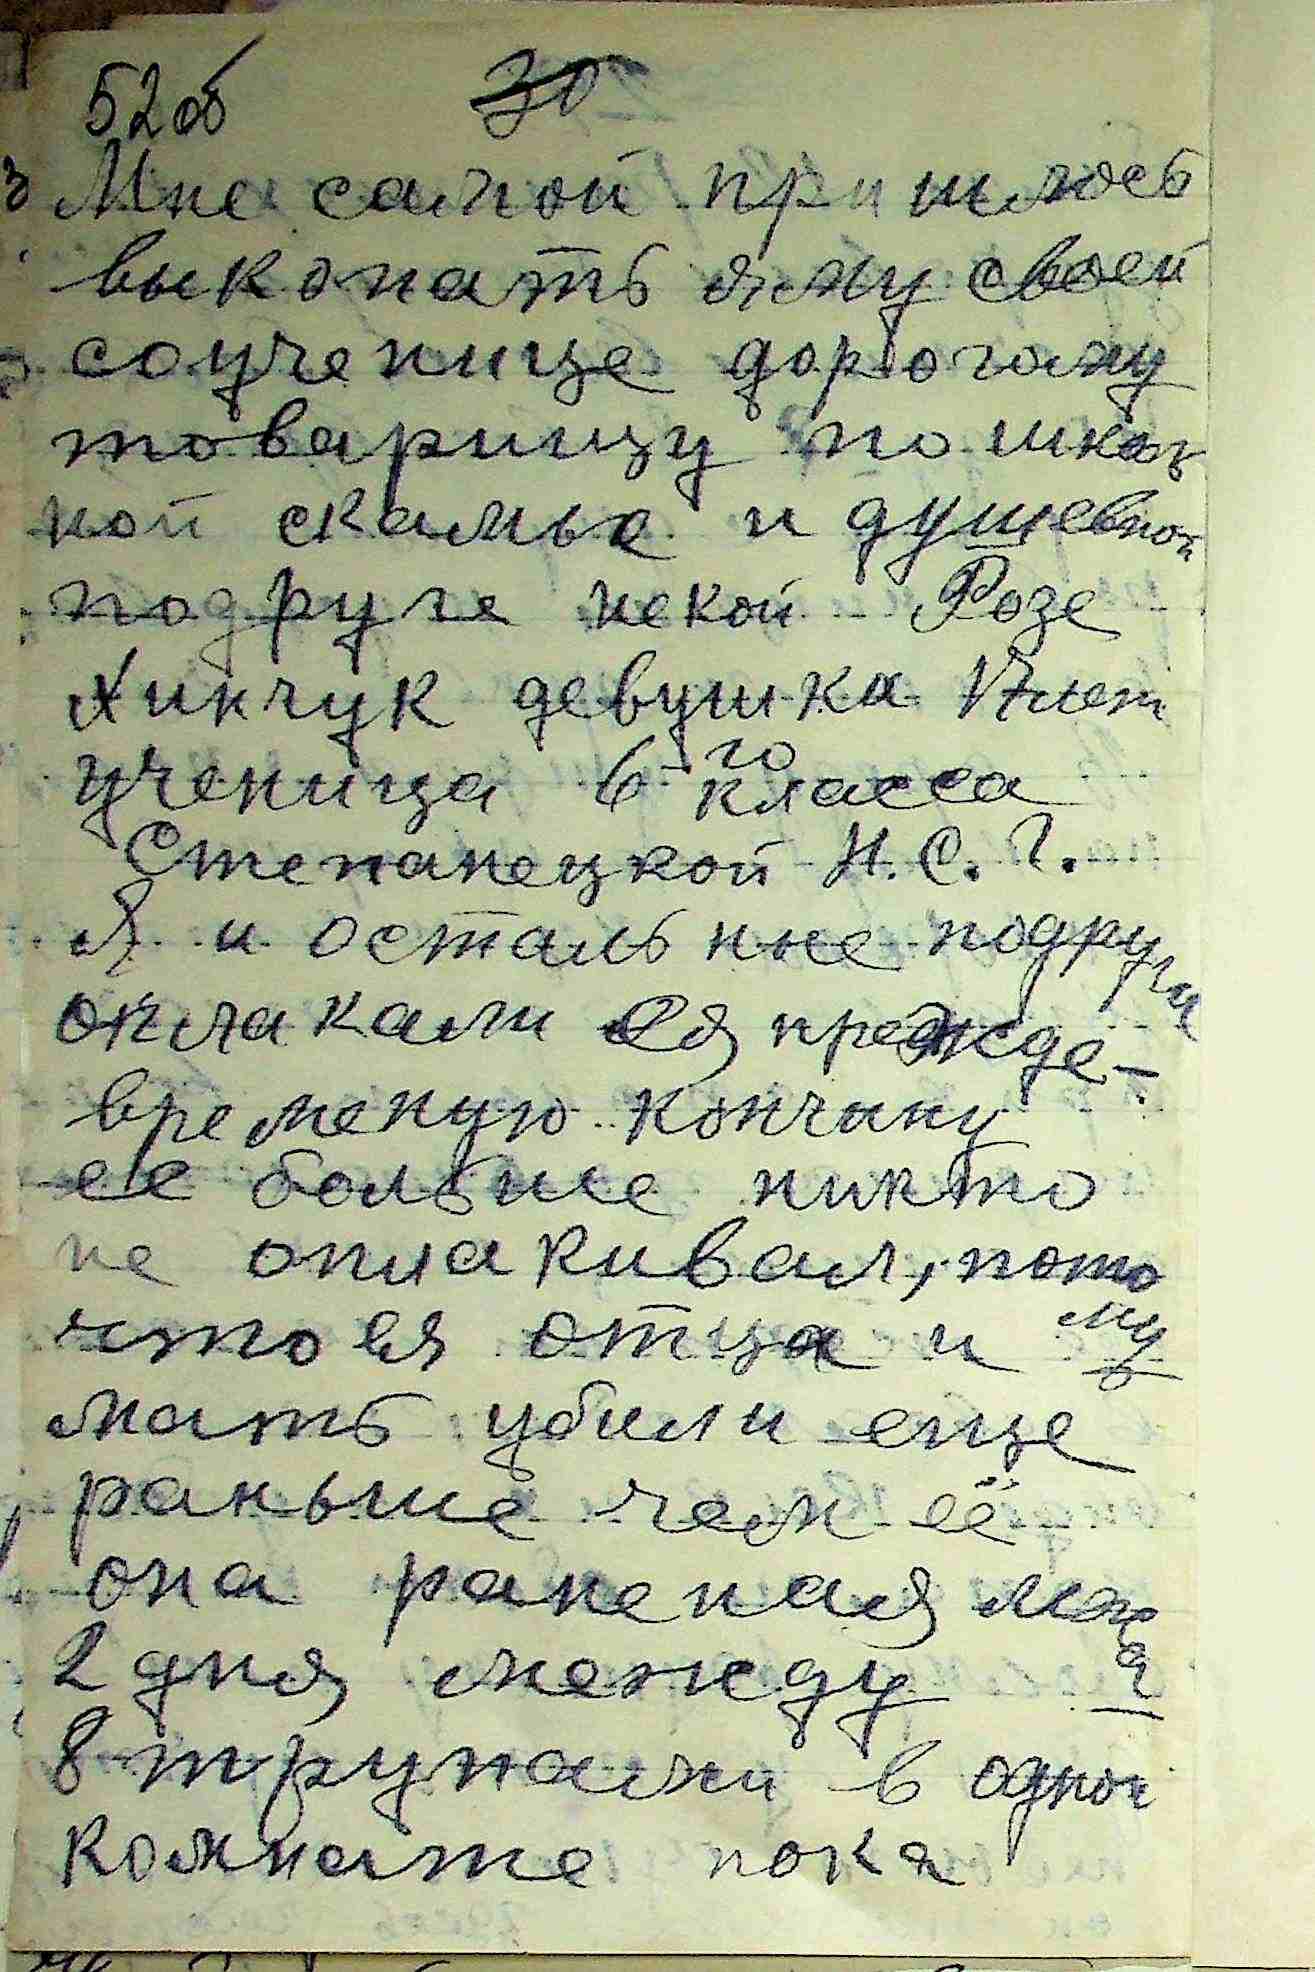 52об 30
Мне самой пришлось
выкопать яму своей
соученице дорогому
товарищу по школь
ной скамье и душевной
подруге некой Розе
Хинчук девушка 17 лет
ученица 6 го класса
Степанецкой Н.С.Г.
Я и остальные подруги
оплакали ея прежде-
временую кончину
ее больше никто
не оплакивал, пото
му
что ея отца и
мать убили еще
раньше чем её
она раненая лежа
а
2 дня между
8 трупами в одной
комнате пока